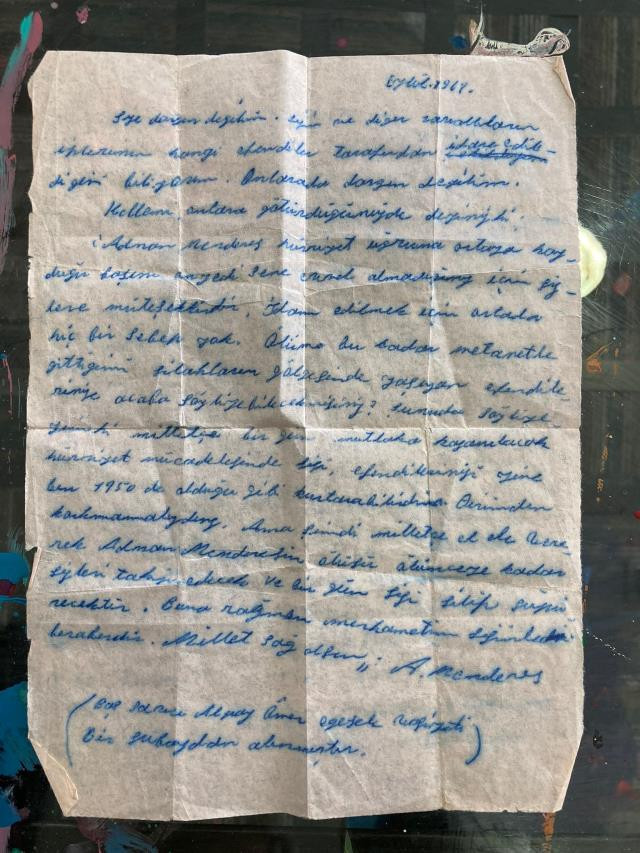 Eylül.1961.
Size dargın değilim. Sizin ve diğer zavallıların
iplerinin hangi efendiler tarafından idare edil-
diğini biliyorum. Onlarada dargın değilim.
Kellemi onlara götürdüğünüzde deyiniz ki:
Adnan Menderes hürriyet uğruna ortaya koy-
duğu başını onyedi sene evvel almadığınız için siz-
lere müteşekkirdir. İdam edilmek için ortada
hiç bir sebep yok. Ölüme bu kadar metanetle
gittiğimi silahların gölgesinde yaşayan efendile
rinize acaba söyliyebilecekmisiniz? Şunuda söyliye
yimki milletçe bir gün mutlaka kazanılacak
hürriyet mücadelesinde sizi, efendilerinizi yine
ben 1950 de olduğu gibi kurtarabilirdim. Dirimden
korkmamalıydınız. Ama şimdi milletçe el ele vere-
rek Adnan Menderesin ölüsü ölünceye kadar
sizleri takip edecek ve bir gün sizi silip süpü
recektir. Buna rağmen merhametim sizinle
beraberdir. Millet sağ olsun,, A. Menderes
(Baş savcı Altay Ömer Egesel
Bir subaydan alınmıştır.)